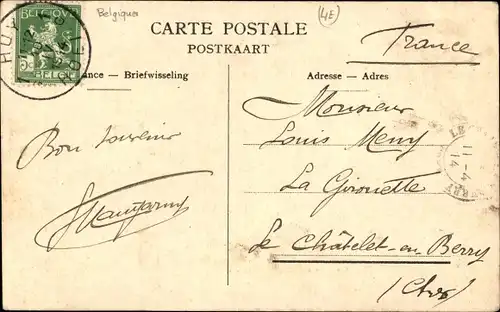 Belgique
4E
CARTE POSTALE
POSTKAART
France
BELGIË
BELGIQUE
HUY
HOEI
ance — Briefwisseling
Adresse — Adres
Monsieur
Louis Meny
La Girouette
Le Châtelet-en-Berry
(Cher)
Bon souvenir
LE
11-4
14